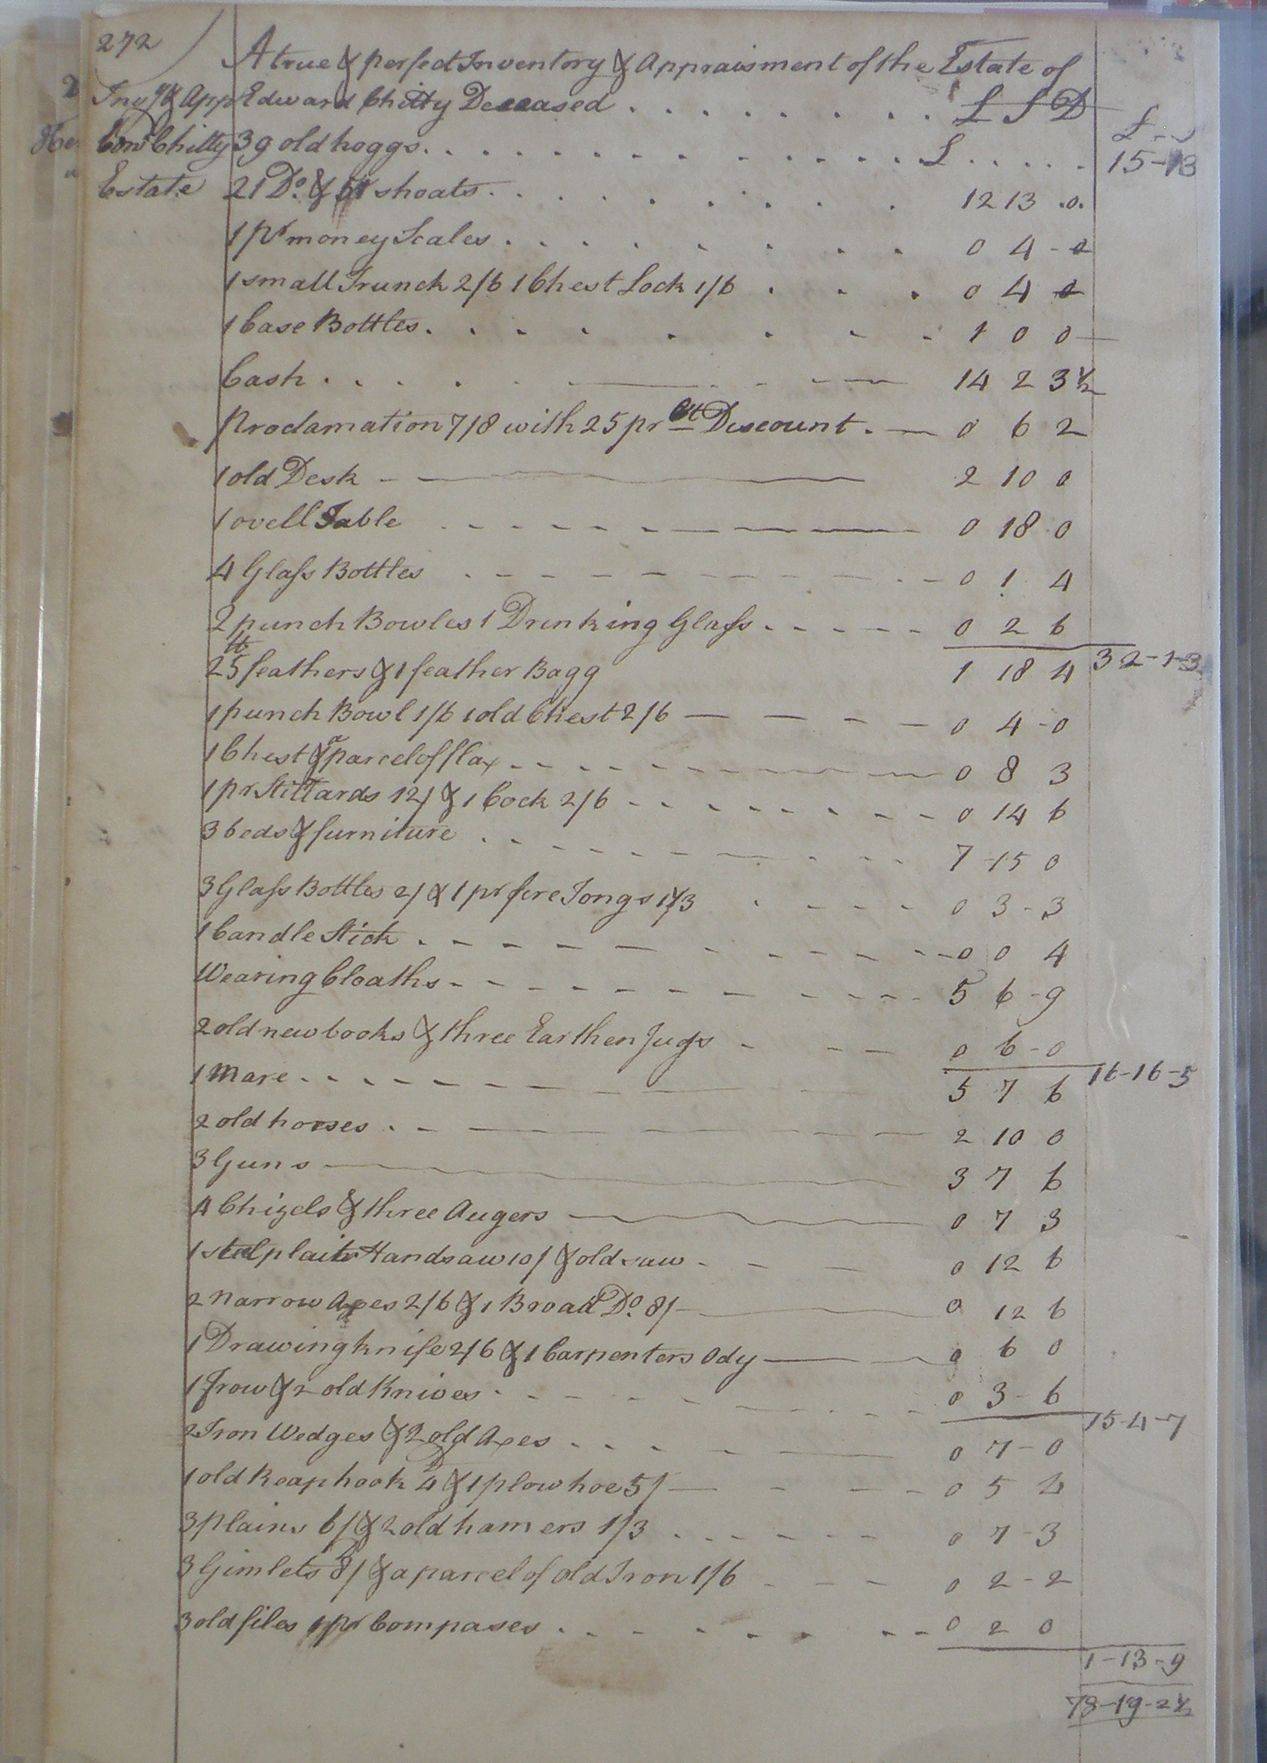 272
A true & perfect Inventory & Appraisment of the Estate of
Inv.y & App Edward Chitty Deceased . . . . . . . . . £ S D
Edw.d Chitty 39 old hoggs . . . . . . . . . . . . . . £ . . . . . 15-13
Estate 21 D.o & 51 shoats . . . . . . . . . 12 13 .0.
1 pr money Scales . . . . . . . . . 0 4 - 0
1 small Trunck 2/6 1 Chest Lock 1/6 . . . 0 4 0
1 Case Bottles . . . . . . . . 1 0 0
Cash . . . . 14 2 3½
Proclamation 7/8 with 25 pr Ct Discount . — 0 6 2
1 old Desk — 2 10 0
1 ovell Table 0 18 0
4 Glass Bottles 0 1 4
2 punch Bowles 1 Drinking Glass . - - - - 0 2 6
25 lb feathers & 1 feather Bagg 1 18 4 32-1-3
1 punch Bowl 1/6 1 old Chest 2/6 — 0 4 - 0
1 Chest & a parcel of flax 0 8 3
1 pr Stittards 12/ & 1 Cock 2/6 0 14 6
3 beds & furniture 7 - 15 0
3 Glass Bottles 2/ & 1 pr fire Tongs 1/3 0 3 - 3
1 Candle Stick 0 0 4
Wearing Cloaths 5 6 - 9
2 old new books & three Earthen Jugs 0 6 - 0
1 Mare 5 7 6 16-16-5
2 old horses 2 10 0
3 Guns 3 7 6
4 Chizels & three Augers 0 7 3
1 steel plaite Handsaw 10/ & old saw 0 12 6
2 Narrow Axes 2/6 & 1 Broad D.o 8/ 0 12 6
1 Drawing knife 2/6 & 1 Carpenters Ody 0 6 0
1 frow & 2 old Knives 0 3 - 6
2 Iron Wedges & 2 old Axes 0 7 - 0 15-4-7
1 old Reap hook 4 D & 1 plow hoe 5/ 0 5 4
3 plains 6/ & 2 old hamers 1/3 0 7 - 3
3 Gimlets 8/ & a parcel of old Iron 1/6 0 2 - 2
3 old files 1 pr Compases 0 2 0
1-13-9
78-19-2½